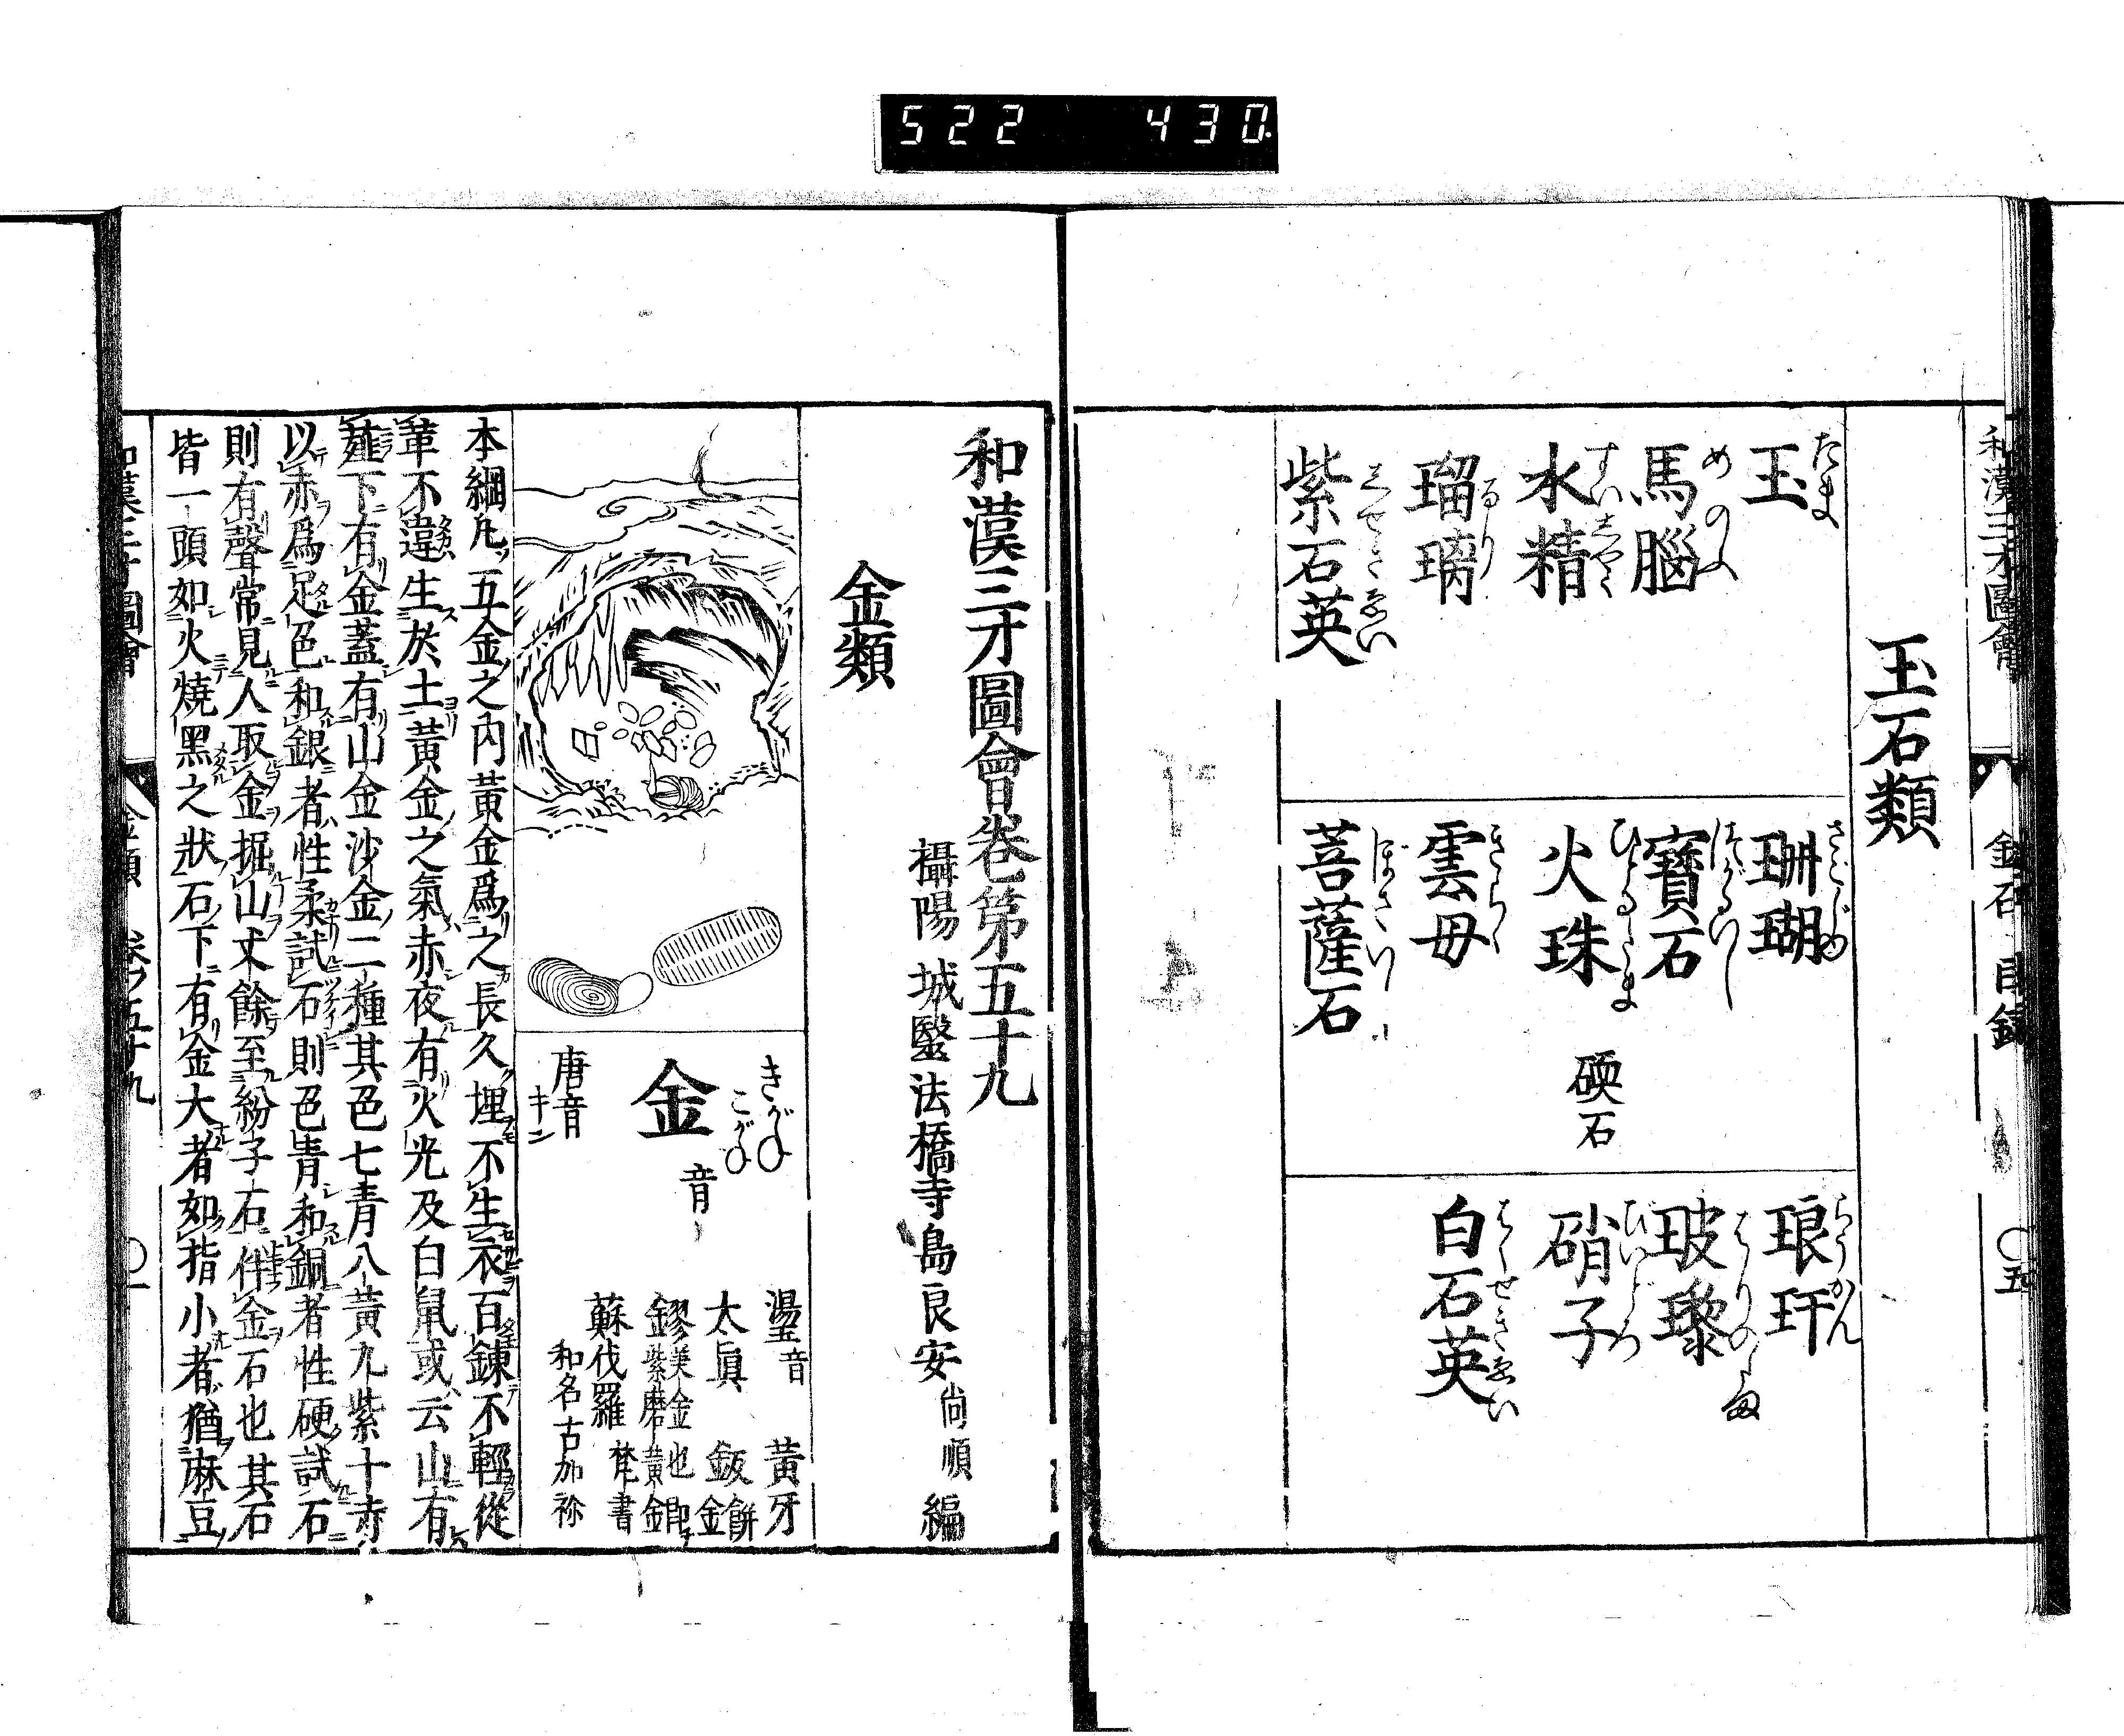 522 430
和漢三才圖會
金石 目録
〇五
玉石類
玉 たま
珊瑚 さごじゆ
琅玕 らうかん
馬腦 めのふ
寶石 はうせき
玻瓈 はりのたま
水精 すいしやう
火珠 ひとるたま
硬石
硝子 びいどろ
瑠璃 るり
雲母 きらゝ
白石英 はくせきゑい
紫石英 しせきゑい
菩薩石 ぼさつ
和漢三才圖會卷第五十九
攝陽 城醫法橋寺島良安 尙順 編
金類
きがね
こがね
金 音
唐音 キン
璗音 黃牙
太眞 鈑 餠金
鏐 美金也 卽紫磨黃金
蘇伐羅 梵書
和名古加祢
本綱凡五金之内黃金爲之長久埋不生衣百鍊不輕從
革不違生於土黃金之氣赤夜有火光及白鼠或云山有
薤下有金蓋有山金沙金二種其色七青八黃九紫十赤
以赤爲足色和銀者性柔試石則色青和銅者性硬試石
則有聲常見人取金掘山丈餘至紛子石伴金石也其石
皆一頭如火燒黑之狀石下有金大者如指小者猶麻豆
和漢三才圖會
金類 卷ノ五十九
〇一